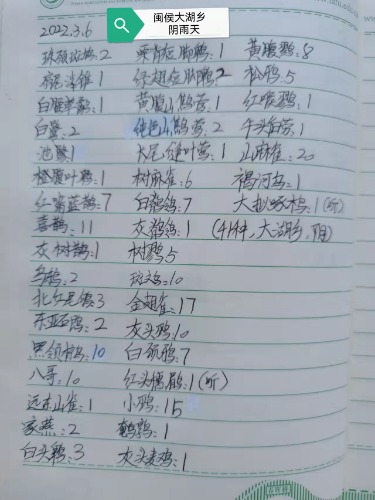 闽侯大湖乡
阴雨天
2022.3.6
珠颈斑鸠. 2
白鹭. 2
池鹭1
橙腹叶鹎. 1
红嘴蓝鹊: 7
喜鹊: 11
灰树鹊: 1
乌鸫: 2
北红尾鸲: 3
东亚石䳭: 2
黑领椋鸟 10
八哥: 10
远东山雀: 1
家燕: 2
白头鹎: 3
栗背短脚鹎: 1
绿翅短脚鹎 2
黄腹山鹪莺: 1
纯色山鹪莺: 2
长尾缝叶莺: 1
树麻雀: 6
白鹡鸰: 7
灰鹡鸰: 1
树鹨 5
斑文鸟: 10
金翅雀: 17
灰头鹀 10
白颈鸦: 7
红头穗鹛: 1 (听)
小鹀: 15
鹌鹑: 1
灰头麦鸡: 1
黄腹鹨: 8
松鸦: 5
红喉鹨: 1
山麻雀: 20
褐河乌: 1
大拟啄木鸟: 1 (听)
(41种, 大湖乡, 阴)